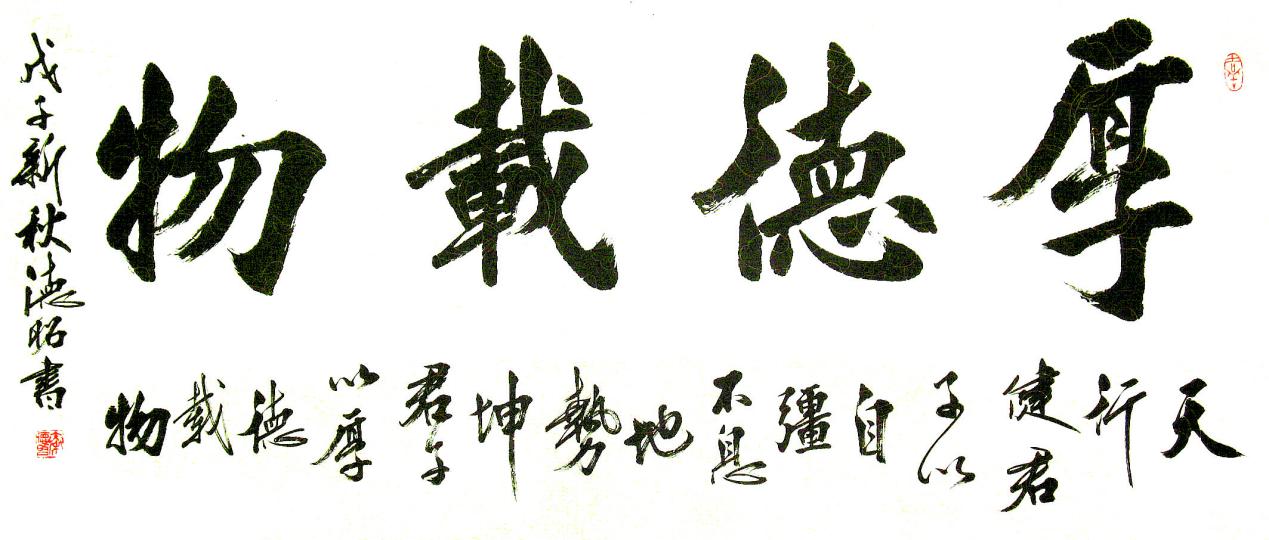 厚德載物
天行健君子以自彊不息地勢坤君子以厚德載物
戊子新秋德昭書